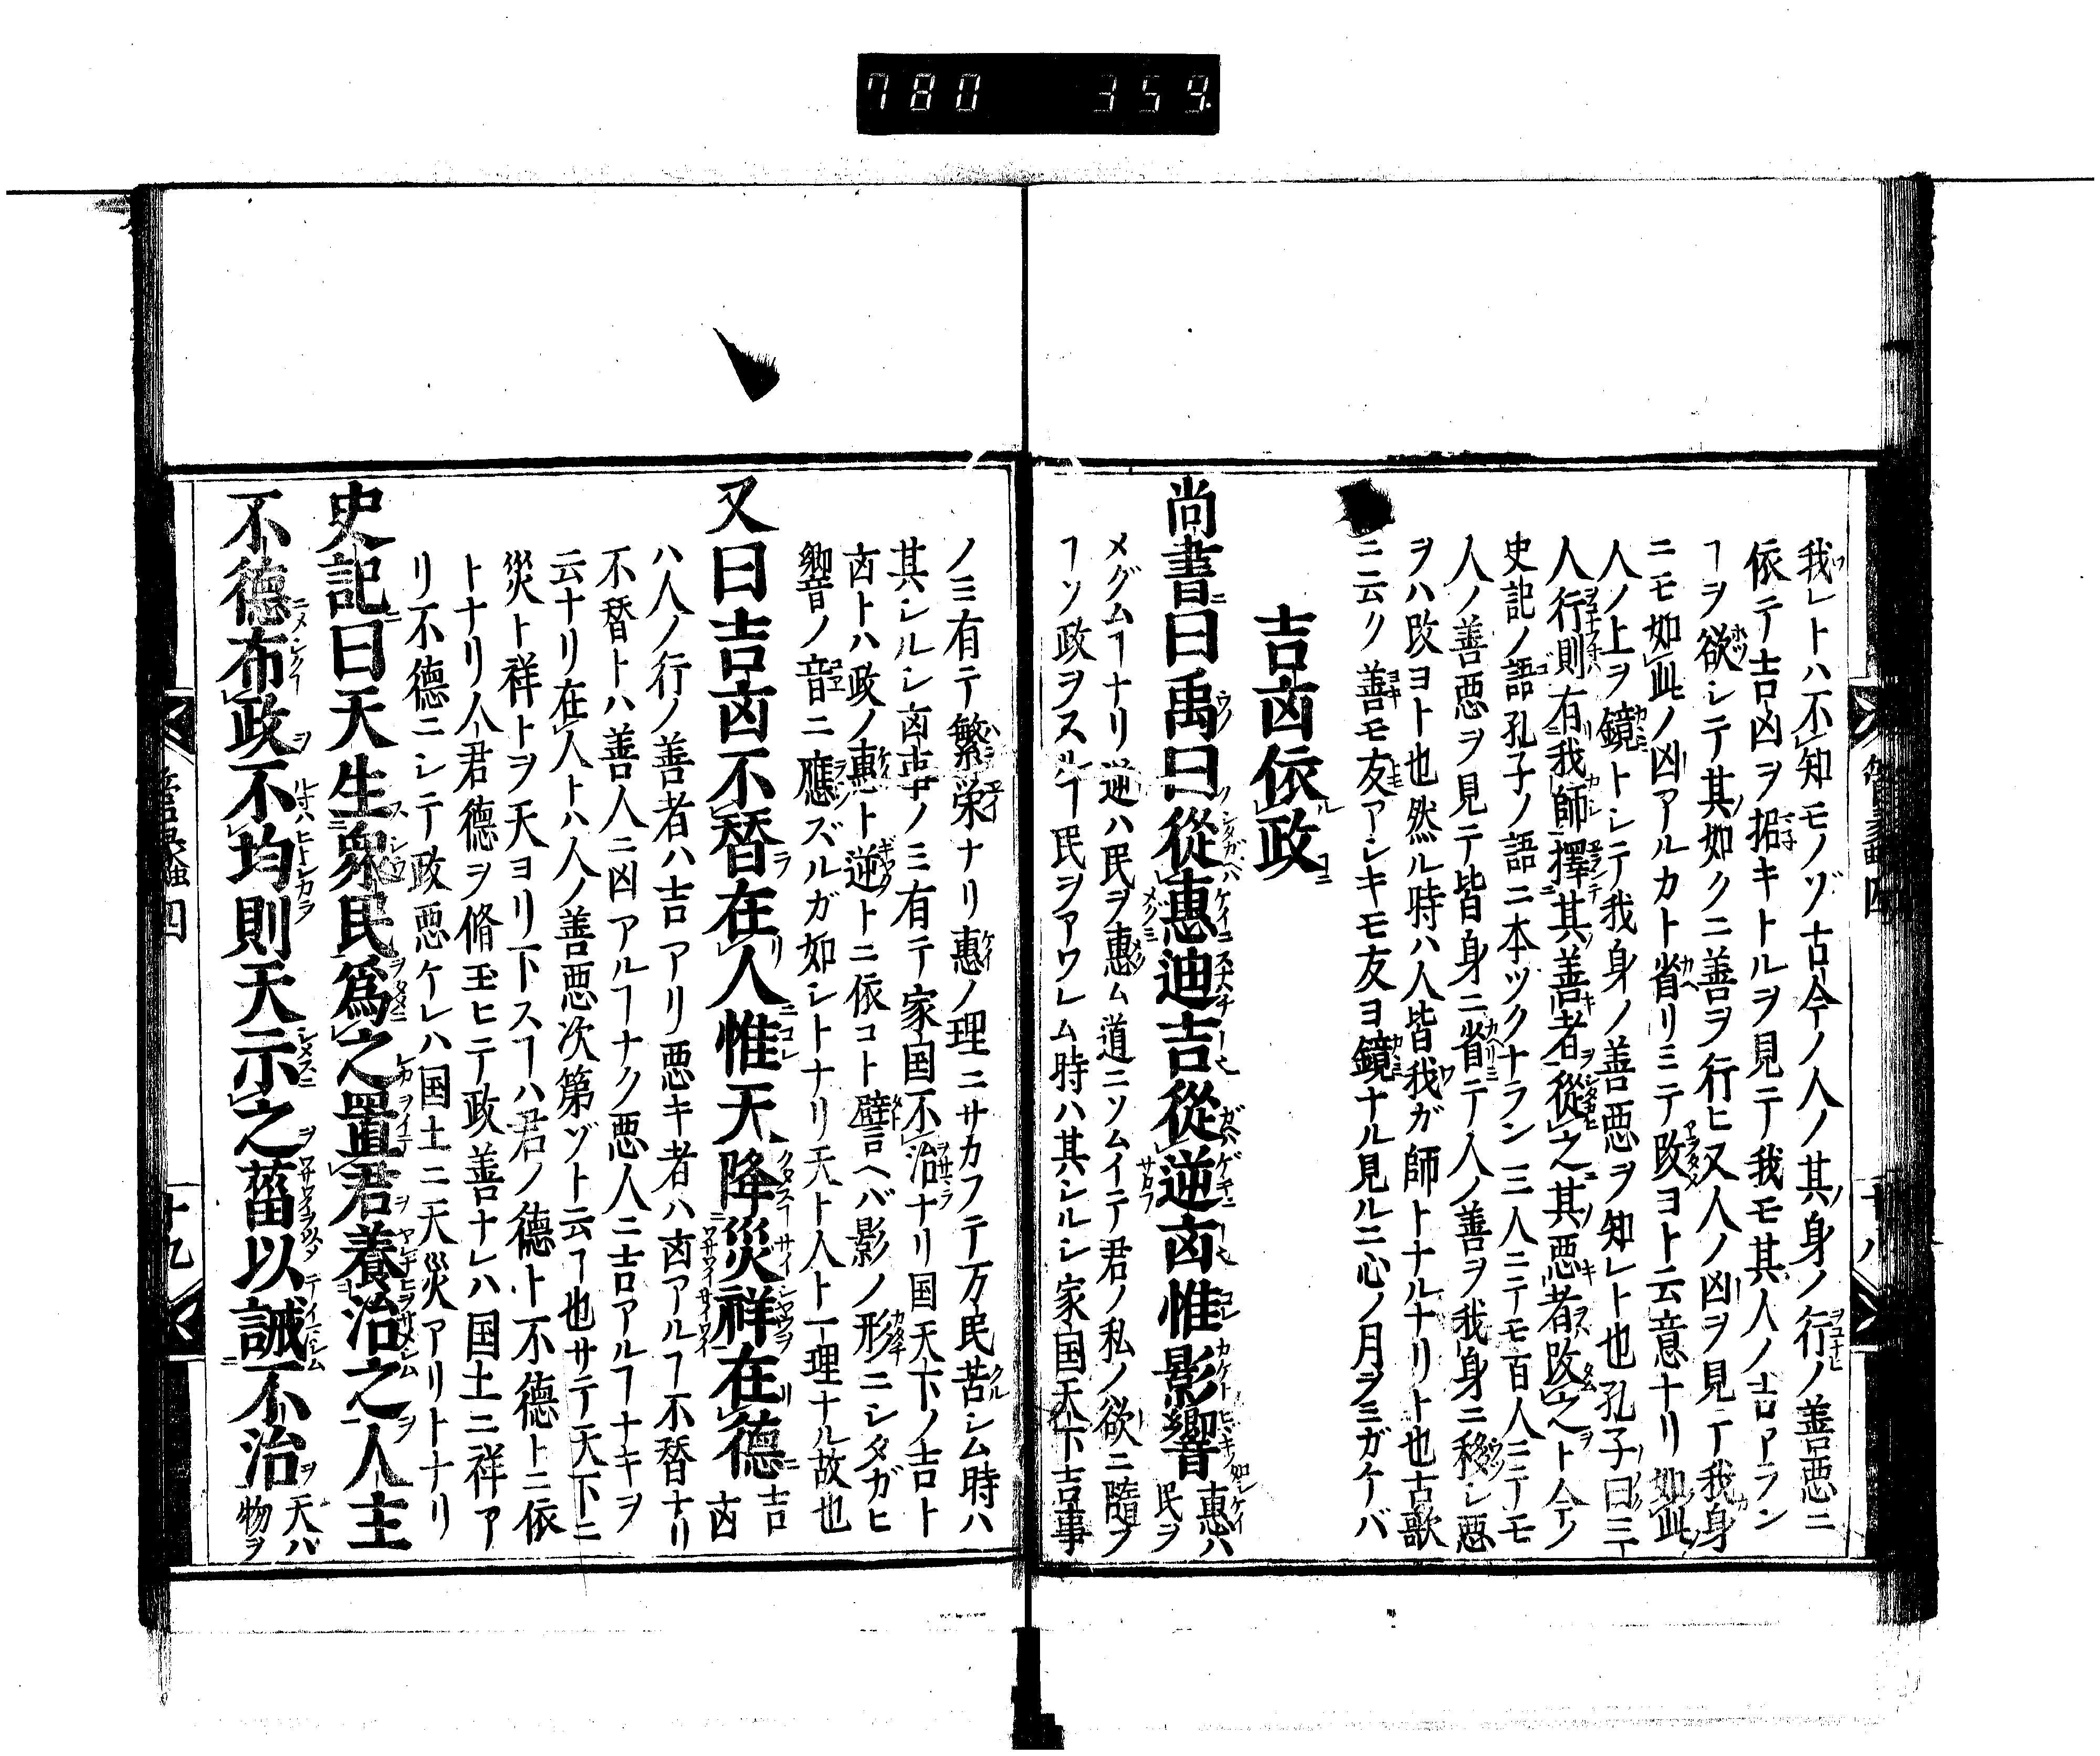 780 359.
我レトハ不レ知モノゾ古今ノ人ノ其身ノ行ノ善惡ニ
依テ吉凶ヲ招キトルヲ見テ我モ其人ノ吉アラン
ヿヲ欲シテ其如クニ善ヲ行ヒ又人ノ凶ヲ見テ我身
ニモ如レ此ノ凶アルカト省リミテ改ヨト云意ナリ如此
人ノ上ヲ鏡トシテ我身ノ善惡ヲ知レト也孔子曰三
人行則有我師擇其善者從之其惡者改之ト今ノ
史記ノ語孔子ノ語ニ本ツクナラン三人ニテモ百人ニテモ
人ノ善惡ヲ見テ皆身ニ省テ人ノ善ヲ我身ニ移シ惡
ヲハ改ヨト也然ル時ハ人皆我ガ師トナルナリト也古歌
ニ云ク善モ友アシキモ友ヨ鏡ナル見ル二心ノ月ヲミガケバ
吉凶依政
尚書曰禹曰從惠迪吉從逆凶惟影響 惠ハ民ヲ
メグムヿナリ逆ハ民ヲ惠ム道ニソムイテ君ノ私ノ欲ニ隨フ
ヿソ政ヲスルヿ民ヲアワレム時ハ其シルシ家国天下吉事
ノミ有テ繁栄ナリ惠ノ理ニサカフテ万民苦シム時ハ
其シルシ凶事ノミ有テ家国不治ナリ国天下ノ吉ト
凶トハ政ノ惠ト逆トニ依コト譬ヘバ影ノ形ニシタガヒ
響ノ音ニ應ズルガ如シトナリ天ト人ト一理ナル故也
又曰吉凶不替在人惟天降災祥在德 吉凶
ハ人ノ行ノ善者ハ吉アリ惡キ者ハ凶アルヿ不替ナリ
不替トハ善人ニ凶アルヿナク惡人ニ吉アルヿナキヲ
云ナリ在人トハ人ノ善惡次第ゾト云ヿ也サテ天下ニ
災ト祥トヲ天ヨリ下スヿハ君ノ德ト不德トニ依
トナリ人君德ヲ脩玉ヒテ政善ナレハ国土ニ祥ア
リ不德ニシテ政惡ケレハ国土ニ天災アリトナリ
史記曰天生衆民爲之置君養治之人主
不德布政不均則天示之菑以誡不治 天ハ物ヲ
十八
四
十九